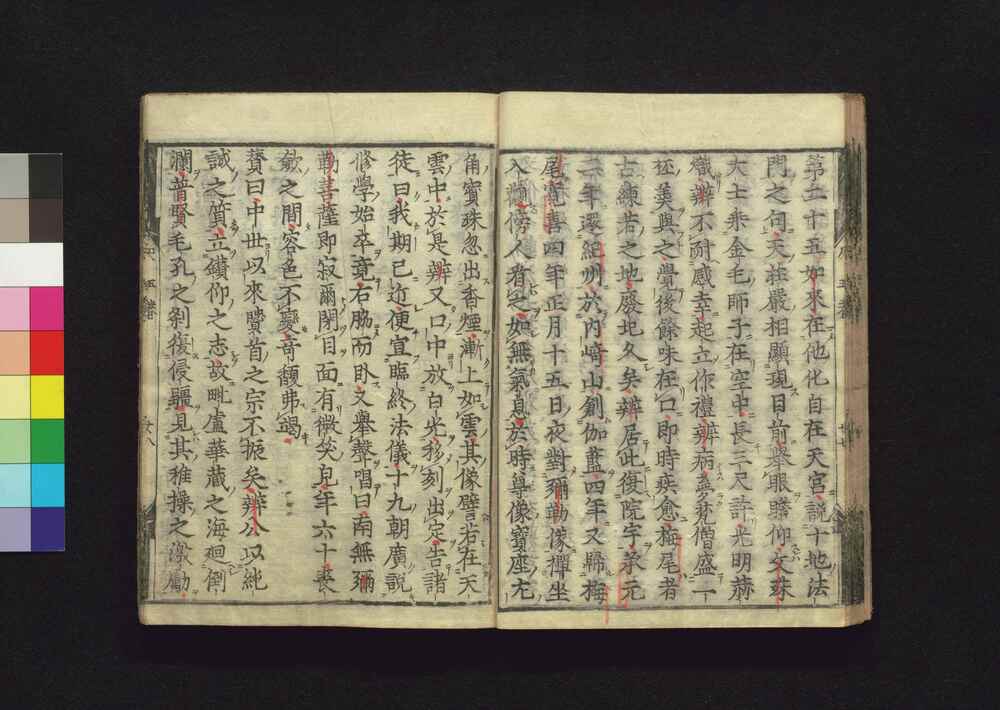 第二十五如來在他化自在天宮說十地法
門之句天莊嚴相顯現目前舉眼瞻仰文殊
大士乘金毛師子在空中長三尺許光明赫
熾辨不耐感幸起立作禮辨病蓋尠僧盛一
坯美與之覺後餘味在口即時疾愈梅尾者
古練若之地廢圮久矣辨居此復院宇承元
二年遂紀州於內崎山創伽藍四年又歸梅
尾寬喜四年正月十五日夜對彌勒像禪坐
入頃傍人看之如無氣息於時尊像寶座左
角寶珠忽出香煙漸上如雲其像譬若在天
雲中於是辨又口中放白光移刻出定告諸
徒曰我期已近便宜臨終法儀十九朝廣說
修學始卒竟右脇而臥又舉聲唱曰南無彌
勒菩薩即寂爾閉目面有微笑兒年六十喪
斂之間容色不變奇馥弗竭
贊曰中世以來賢首之宗不振矣辨公以純
誠之質立鑽仰之志故毗盧華藏之海廻倒
瀾普賢毛孔之剎復侵疆見其雅操之激勵